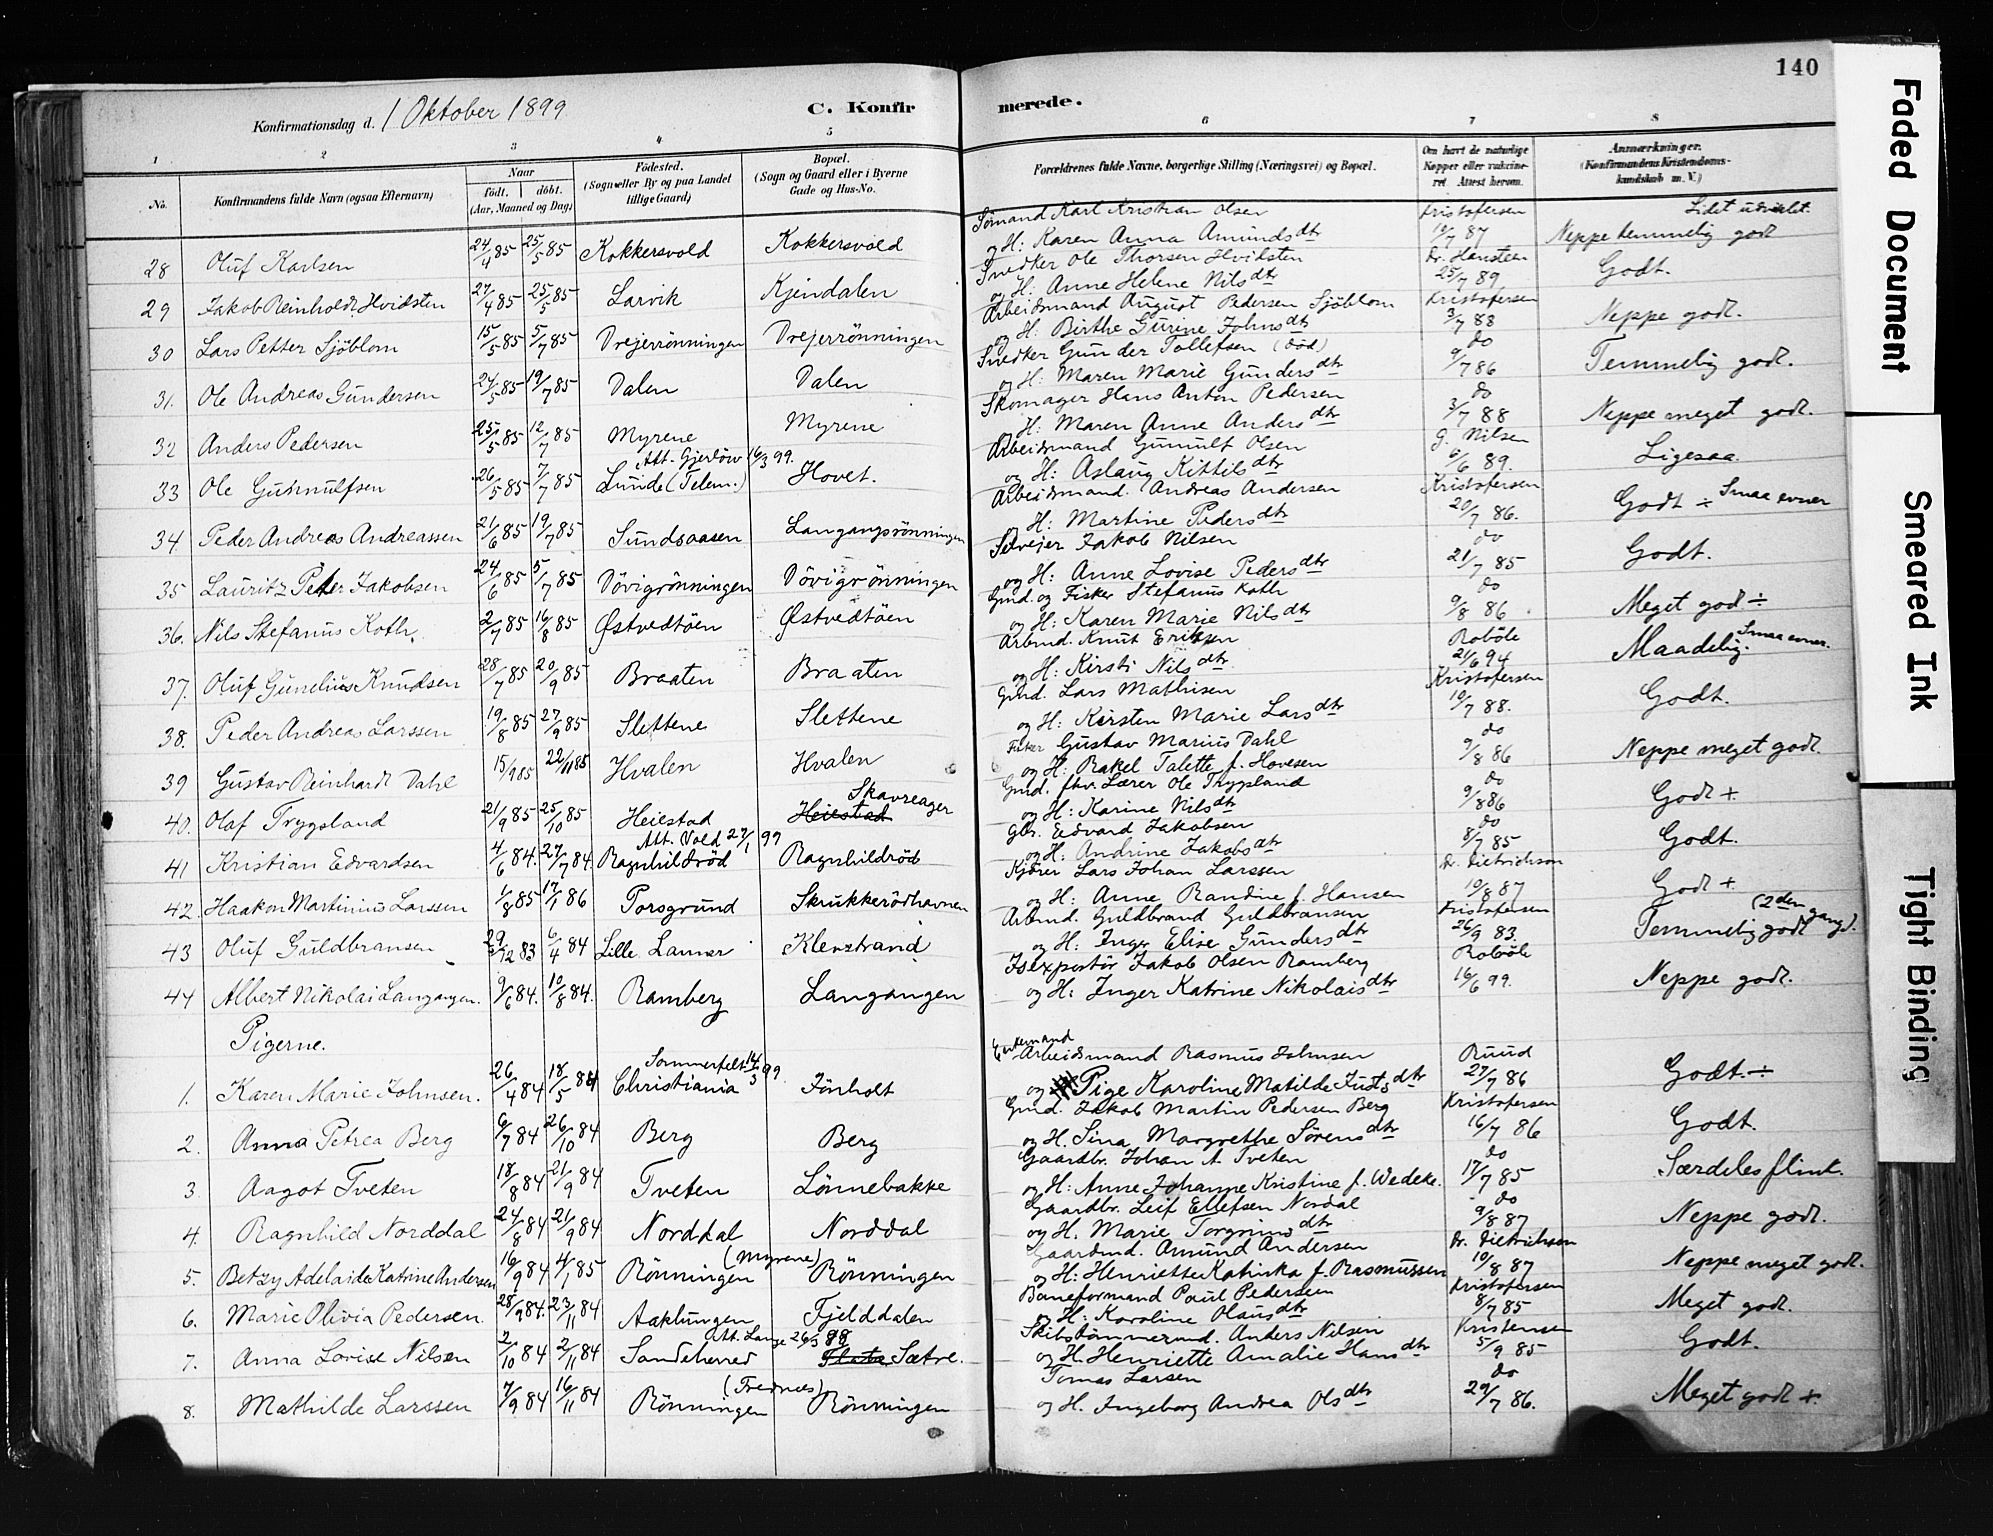 140
Konfirmationsdag d. 1 Oktober 1899
C. Konfirmerede.
1 2 3 4 5 6 7 8
No. Konfirmandens fulde Navn (ogsaa Efternavn) Naar født, døbt. (Aar, Maaned og Dag) Fødested. (Sogn eller By og paa Landet tillige Gaard) Bopæl. (Sogn og Gaard eller i Byerne Gade og Hus-No. Forældrenes fulde Navne, borgerlige Stilling (Næringsvei) og Bopæl. Om havt de naturlige Kopper eller vakcineret Attest herom. Anmærkninger. (Konfirmandens Kristendomskundskab m. V.)
Sømand Karl Kristian Olsen Kristofersen Lidet udviklet.
28 Oluf Karlsen 24/4 85 25/5 85 Kokkersvold Kokkersvold og H: Karen Anna Amundsdtr 19/7 87 Neppe temmelig godt
Snedker Ole Thorsen Hvidsten Dr. Hansteen
29 Jakob Reinholdt Hvidsten 27/4 85 25/5 85 Larvik Kjendalen og H: Anne Helene Nilsdtr 25/7 89 Godt.
Arbeidsmand August Pedersen Sjöblom Kristofersen
30 Lars Petter Sjöblom 15/5 85 5/7 85 Drejerrönningen Drejerrönningen og H: Birthe Gurine Johnsdtr 3/7 88 Neppe godt.
Snedker Gunder Tollefsen (död) do
31. Ole Andreas Gundersen 24/5 85 19/7 85 Dalen Dalen og H: Maren Marie Gundersdtr 9/7 86 Temmelig godt.
Skomager Hans Anton Pedersen do
32 Anders Pedersen 25/5 85 12/7 85 Myrene Myrene H: Maren Anne Andersdtr 3/7 88 Neppe meget godt.
Att. Gjerløw 16/3 99. Arbeidsmand Gunnult Olsen G. Nilsen
33 Ole Gunnulfsen 26/5 85 7/7 85 Lunde (Telem.) Hovet. og H: Aslaug Kittilsdtr 6/6 89. Ligesaa.
Arbeidsmand. Andreas Andersen Kristofersen
34 Peder Andreas Andreassen 21/6 85 19/7 85 Sundsaasen Langangsrönningen og H: Martine Pedersdtr 20/7 86. Godt ÷ Smaa evner
Selvejer Jakob Nilsen do
35 Lauritz Peter Jakobsen 24/6 85 5/7 85 Dövigrönningen Dövigrönningen og H: Anne Lovise Pedersdtr 21/7 85 Godt.
Gmd. og Fisker Stefanus Koth do
36. Nils Stefanus Koth. 2/7 85 16/8 85 Østvedtöen Østvedtöen og H: Karen Marie Nilsdtr 9/8 86 Meget godt ÷
Arbmd. Knut Eriksen Robøle
37. Oluf Gunelius Knudsen 28/7 85 20/9 85 Braaten Braaten og H: Kirsti Nilsdtr 21/6 94 Maadelig. Smaa evner.
Gmd. Lars Mathisen Kristofersen
38. Peder Andreas Larssen 19/8 85 27/9 85 Slettene Slettene og H: Kirsten Marie Larsdtr 19/7 88. Godt.
Fisker Gustav Marius Dahl do
39 Gustav Reinhardt Dahl 15/9 85 22/11 85 Hvalen Hvalen og H: Rakel Talette f. Hovesen 9/8 86 Neppe meget godt.
Skavreager Gmd. fhv. Lærer Ole Trygsland do
40. Olaf Trygsland 21/9 85 25/10 85 Heiestad Heiestad og H: Karine Nilsdtr 9/8 86 Godt +
Att. Vold 27/1 99 Gbr. Edvard Jakobsen do
41 Kristian Edvardsen 4/6 84. 27/7 84. Ragnhildröd Ragnhildröd og H: Andrine Jakobsdtr 8/7 85 Godt.
Kjører Lars Johan Larssen Dr. Dietrichson
42. Haakon Martinius Larssen 1/8 85 17/1 86 Porsgrund Skrukkerödhavnen og H: Anne Randine f. Hansen 19/8 87 Godt +
Arbmd. Guldbrand Guldbransen Kristofersen (2den gang).
43 Oluf Guldbransen 29/12 83 6/4 84 Lille Lanner Klevstrand og H: Inger Elise Gundersdtr 26/9 83. Temmelig godt
Isexpeditör Jakob Olsen Ramberg Robøle
44 Albert Nikolai Langangen. 9/6 84. 10/8 84. Ramberg Langangen og H: Inger Katrine Nikolaisdtr 16/6 99. Neppe godt.
Pigerne.
Sommerfelt 14/3 99. Enkemand Arbeidsmand Rasmus Johnsen Ruud
1. Karen Marie Johnsen. 26/4 84 18/5 84 Christiania Jönholt og Pige Karoline Matilde Justsdtr 27/7 86 Godt. ÷
Gmd. Jakob Martin Pedersen Berg Kristofersen
2. Anna Petrea Berg 6/7 84 26/10 84 Berg Berg og H. Sina Margrethe Sörensdtr 16/7 86 Godt.
Gaardbr. Johan A Tveten do
3. Aagot Tveten 18/8 84 21/9 84 Tveten Lönnebakke og H: Anne Johanne Kristine f. Wedeke. 17/7 85 Særdeles flink.
Gaardbr. Leif Ellefsen Nordal do
4. Ragnhild Norddal 24/8 84 21/9 84 Norddal Norddal og H. Marie Torgrimsdtr 9/8 87 Neppe godt.
(Myrene) Gaardmd. Amund Andersen Dr. Dietrichson
5. Betzy Adelaide Katrine Andersen 16/9 84 4/1 85 Rönningen Rönningen og H: Henriette Katinka f. Rasmussen 19/8 87 Neppe meget godt.
Baneformand Paul Pedersen Kristofersen
6. Marie Olivia Pedersen. 28/9 84. 23/11 84 Aaklungen Fjelddalen og H: Karoline Olausdtr 8/7 85 Meget godt.
Att. Lange 26/3 99 Skibstömmermd. Anders Nilsen Kristensen
7. Anna Lovise Nilsen 2/10 84 2/11 84 Sandeherred Sætre. og H. Henriette Amalie Hansdtr 5/9 85 Godt.
(Frednes) Tomas Larsen do
8. Mathilde Larssen 7/9 84 16/11 84 Rönningen Rönningen og H. Ingeborg Andrea Olsdtr 29/7 86. Meget godt +.
Faded Document
Smeared Ink
Tight Binding